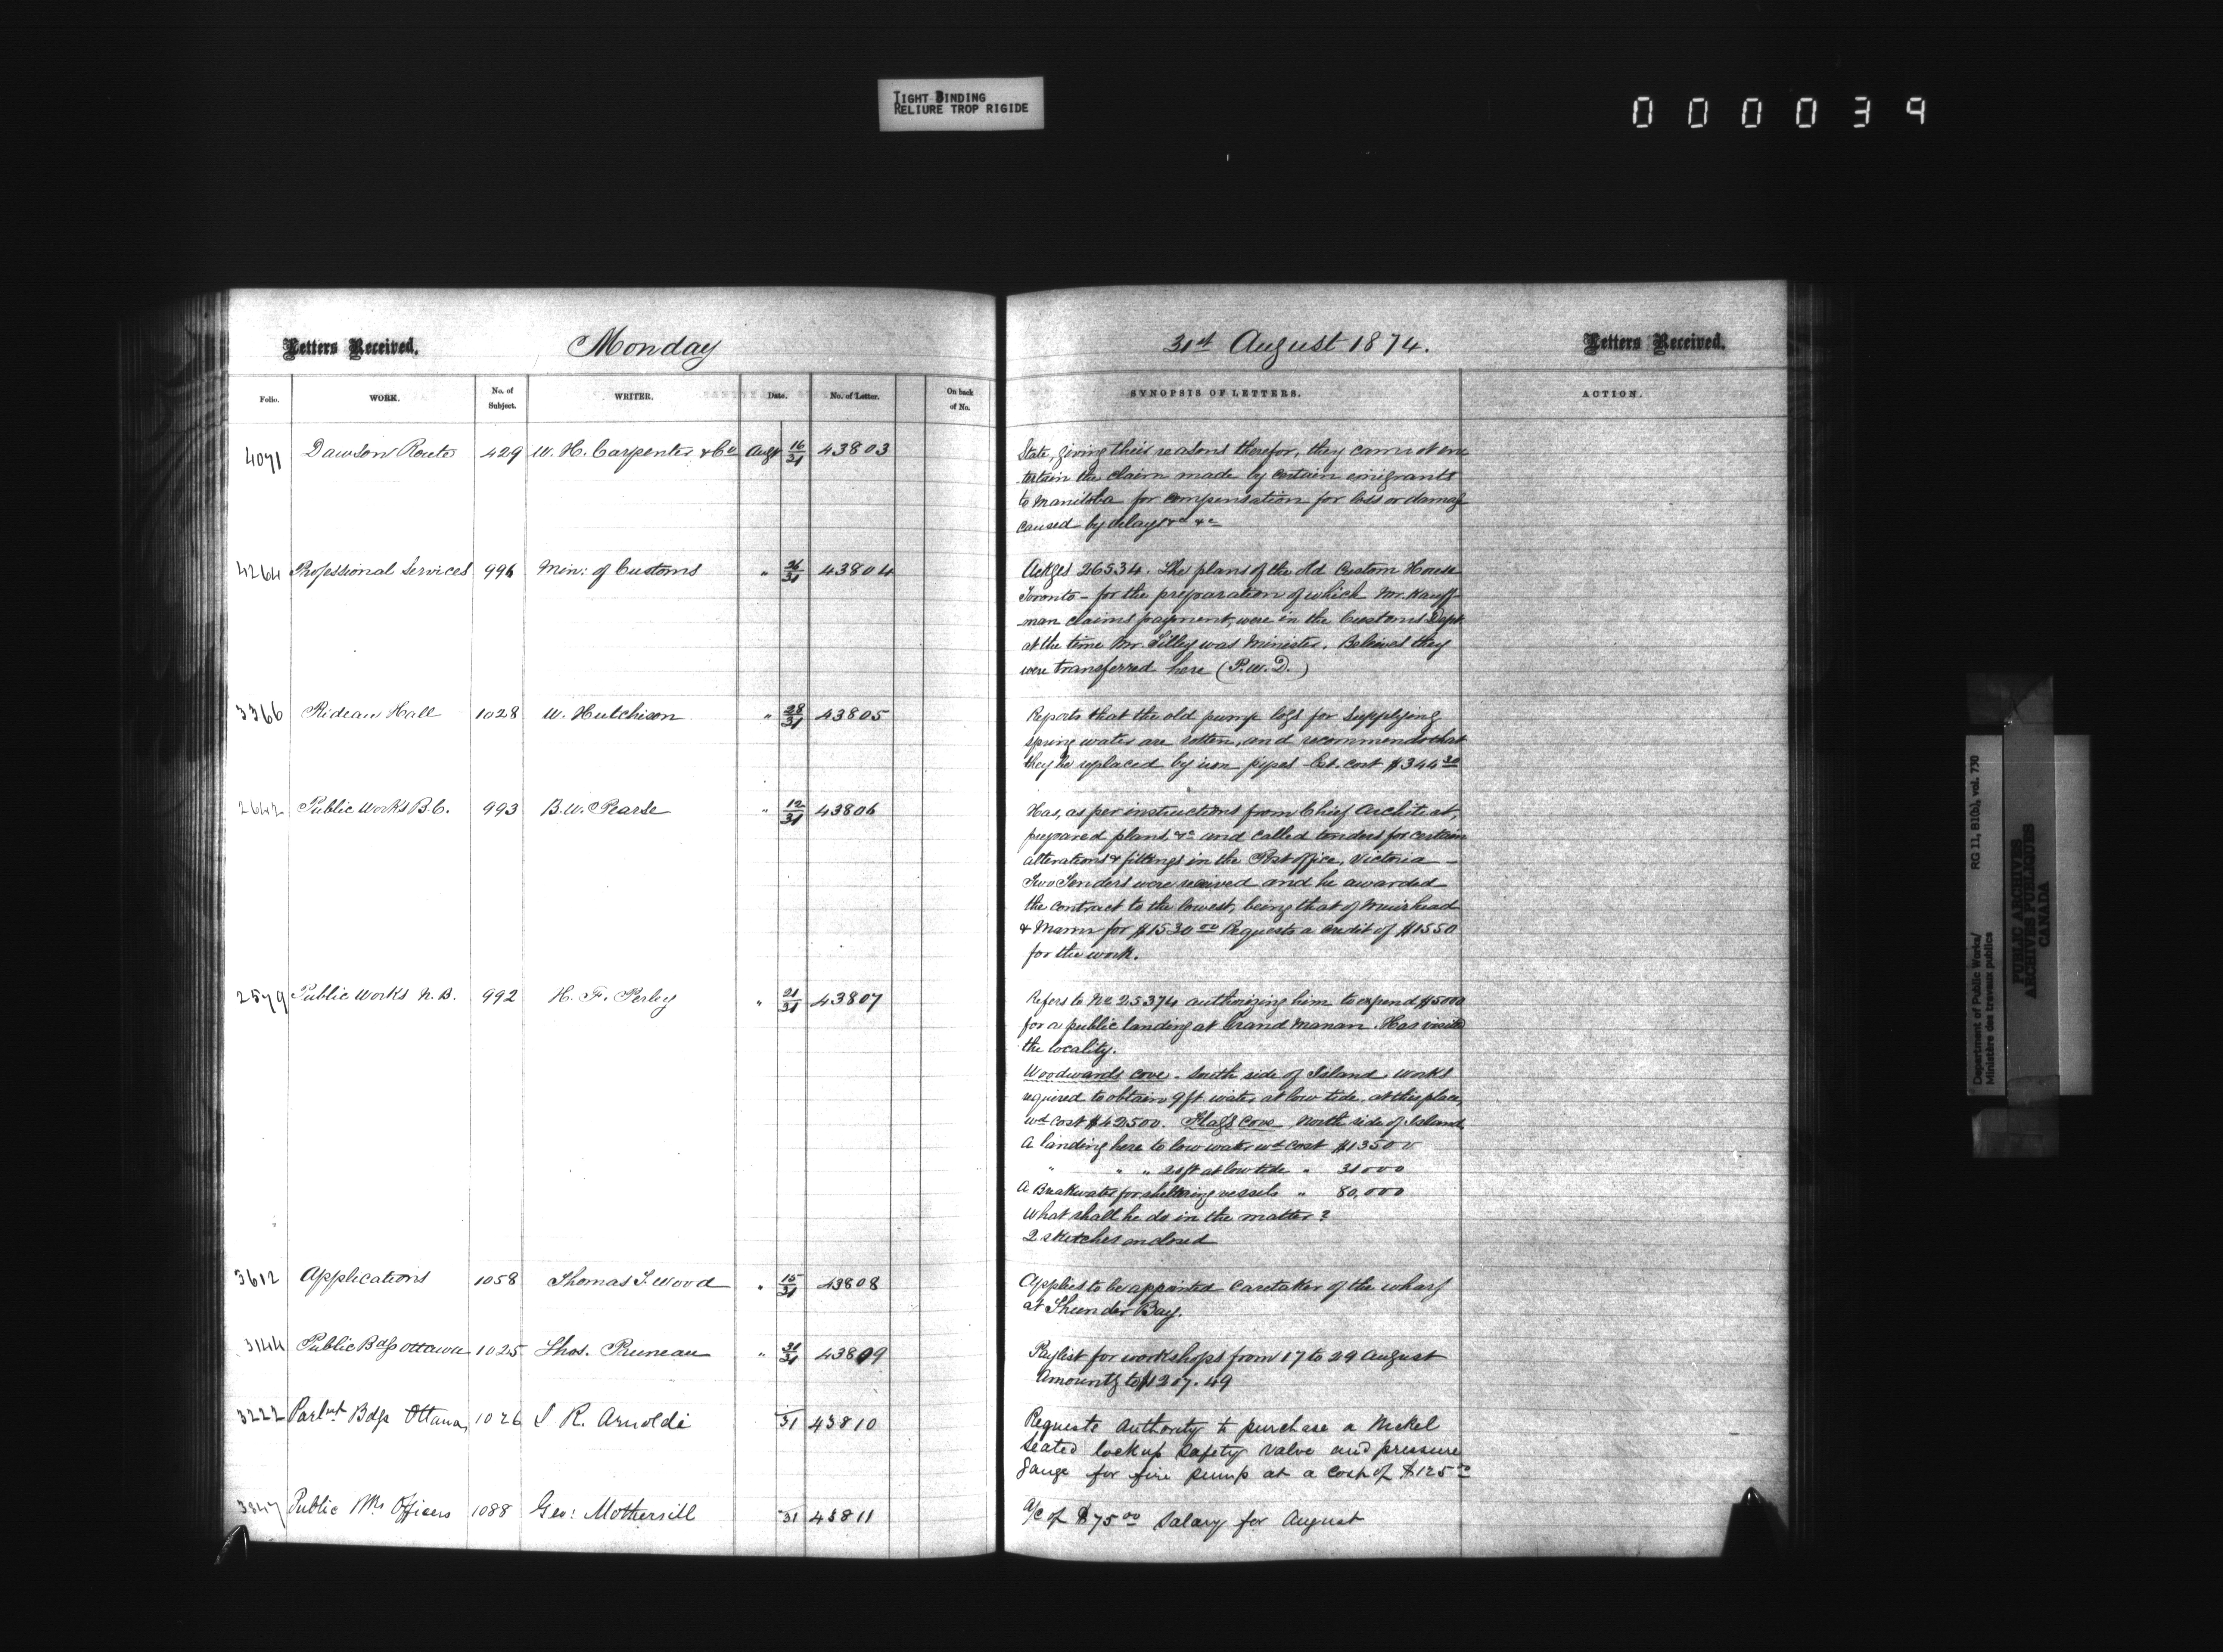 TIGHT BINDING
RELIURE TROP RIGIDE
000039
Letters Received. Monday 31st August 1874. Letters Received.
Folio. WORK. No. of Subject. WRITER. Date. No. of Letter. On back of No. SYNOPSIS OF LETTERS. ACTION.
4071 Dawson Route 429 W. H. Carpenter & Co Augt 16/31 43803
State, giving their reasons therefor, they cannot en
tertain the claim made by certain emigrants
to Manitoba for compensation for loss or damage
caused by delays &c &c
4264 Professional Services 996 Min: of Customs " 26/31 43804
Ackges 26534. The plans of the old Custom House
Toronto - for the preparation of which Mr. Kauff-
man claims payment, were in the Customs Dept
at the time Mr. Tilley was Minister. Believes they
were transferred here (P.W.D.)
3366 Rideau Hall 1028 W. Hutchison " 28/31 43805
Reports that the old pump logs for supplying
spring water are rotten, and recommends that
they be replaced by iron pipes - Est. cost $344.30
2642 Public Works B.C. 993 B.W. Pearse " 12/31 43806
Has, as per instructions from Chief Architect,
prepared plans, &c and called tenders for certain
alterations & fittings in the Post office, Victoria -
Two Tenders were received and he awarded
the contract to the lowest, being that of Muirhead
& Mann for $1530.00 Requests a credit of $1550
for the work.
2579 Public Works N.B. 992 H. F. Perley " 21/31 43807
Refers to No 25374 authorizing him to expend $5000
for a public landing at Grand Manan. Has visited
the locality.
Woodwards Cove - South side of Island works
required to obtain 9 ft. water at low tide at this place,
wd cost $42500. Flags Cove North side of Island
A landing here to low water wd cost $13500
" " " 20 ft at low tide " 31000
A Breakwater for sheltering vessels " 80,000
What shall he do in the matter?
2 sketches enclosed
3612 Applications 1058 Thomas S. Wood " 15/31 43808
Applies to be appointed caretaker of the wharf
at Thunder Bay.
3144 Public Bdgs Ottawa 1025 Thos. Pruneau " 31/31 43809
Paylist for workshops from 17 to 29 August
Amounts to $1207.49
3222 Parlmt Bdgs Ottawa 1026 J R. Arnoldi 31 43810
Requests authority to purchase a Nickel
seated lock up safety valve and pressure
gauge for fire pump at a cost of $125.00
3847 Public Wks Officers 1088 Geo: Mothersill 31 43811
A/c of $75.00 salary for August
Department of Public Works/
Ministère des travaux publics
RG 11, B1(b), vol. 730
PUBLIC ARCHIVES
ARCHIVES PUBLIQUES
CANADA